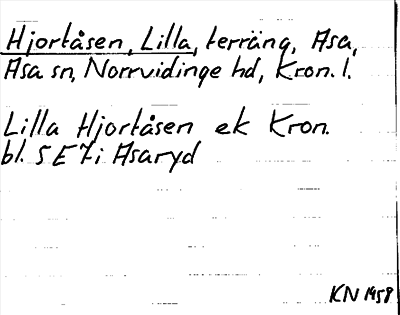 Hjortåsen, Lilla, terräng, Asa,
Asa sn, Norrvidinge hd, Kron. l.
Lilla Hjortåsen ek Kron.
bl. 5 E 7 i Asaryd
KN 1958